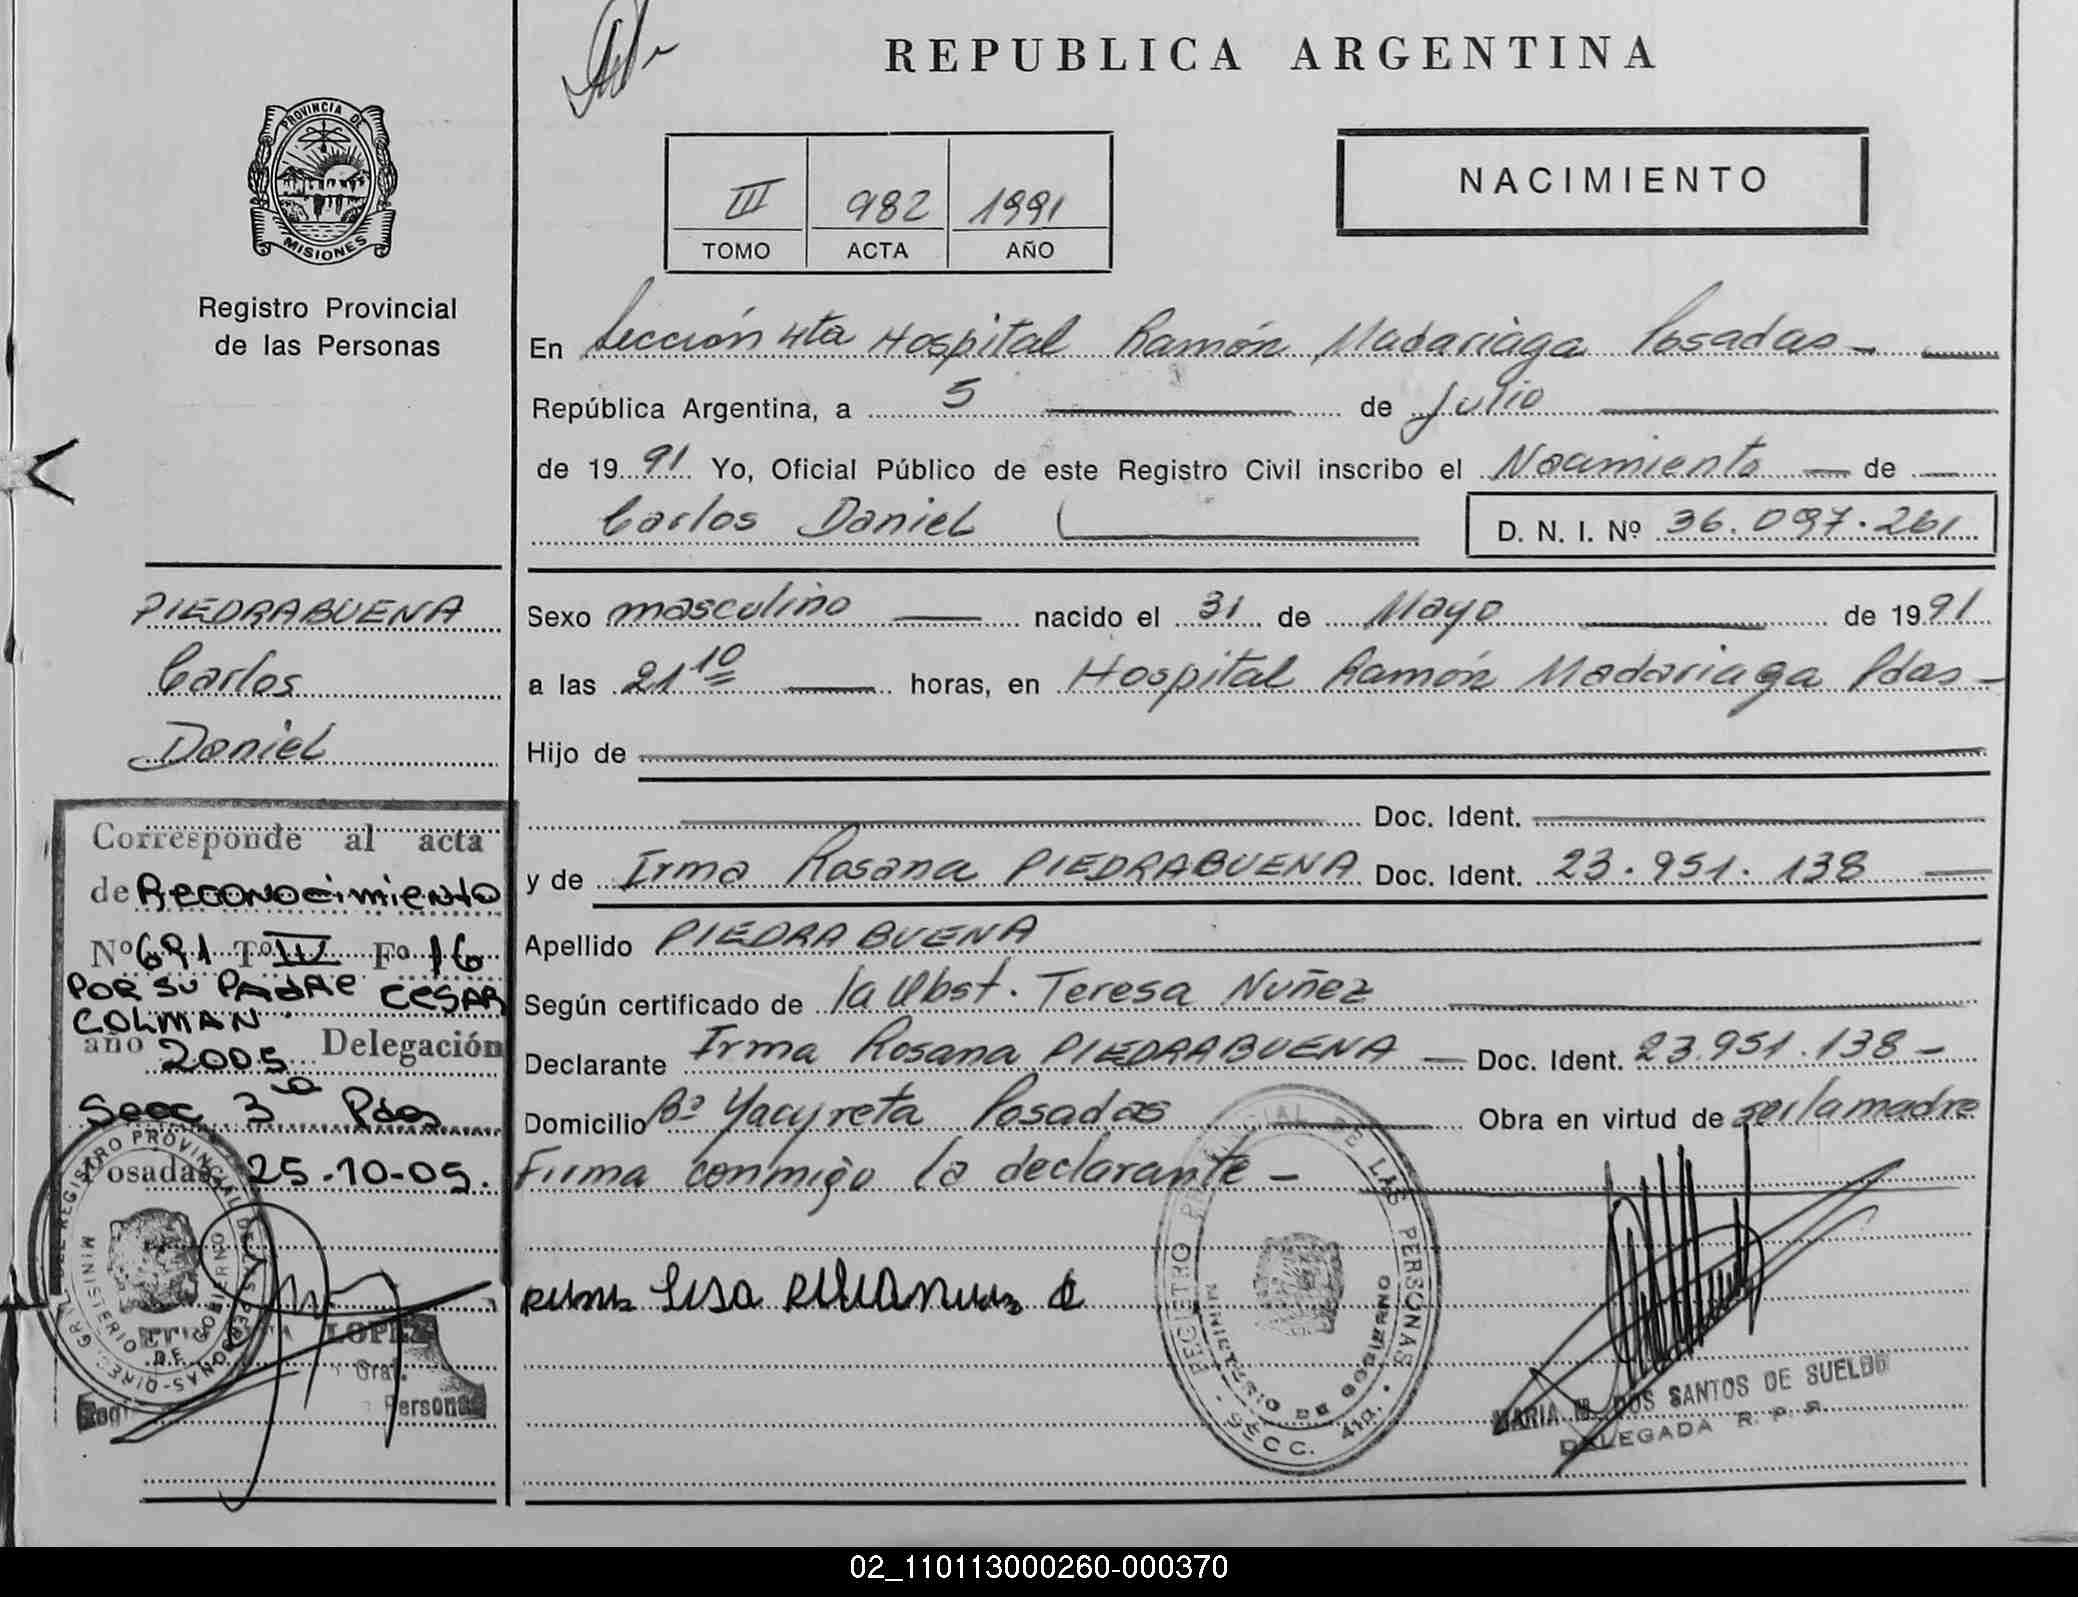 REPUBLICA ARGENTINA
PROVINCIA DE
MISIONES
Registro Provincial
de las Personas
III 982 1991
TOMO ACTA AÑO
NACIMIENTO
En Sección 4ta Hospital Ramón Madariaga Posadas -
República Argentina, a 5 de Julio
de 1991 Yo, Oficial Público de este Registro Civil inscribo el Nacimiento de
Carlos Daniel D. N. I. Nº 36.097.261
PIEDRABUENA
Carlos
Daniel
Sexo masculino nacido el 31 de Mayo de 1991
a las 21 10 horas, en Hospital Ramón Madariaga Pdas -
Hijo de
Doc. Ident.
y de Irma Rosana PIEDRABUENA Doc. Ident. 23.951.138
Apellido PIEDRABUENA
Según certificado de la Obst. Teresa Nuñez
Declarante Irma Rosana PIEDRABUENA - Doc. Ident. 23.951.138 -
Domicilio Bº Yacyreta Posadas Obra en virtud de ser la madre
Firma conmigo la declarante -
Corresponde al acta
de Reconocimiento
Nº 691 Tº IV Fº 16
POR SU PADRE CESAR
COLMAN
año 2005 Delegación
Secc 3ª Pdas
Posadas 25-10-05.
REGISTRO PROVINCIAL DE LAS PERSONAS
MINISTERIO DE GOBIERNO
LOPEZ
Gral.
REGISTRO PROVINCIAL DE LAS PERSONAS
MINISTERIO DE GOBIERNO
SECC. 4ta.
MARIA DOS SANTOS DE SUELDO
DELEGADA R. P. P.
02_110113000260-000370